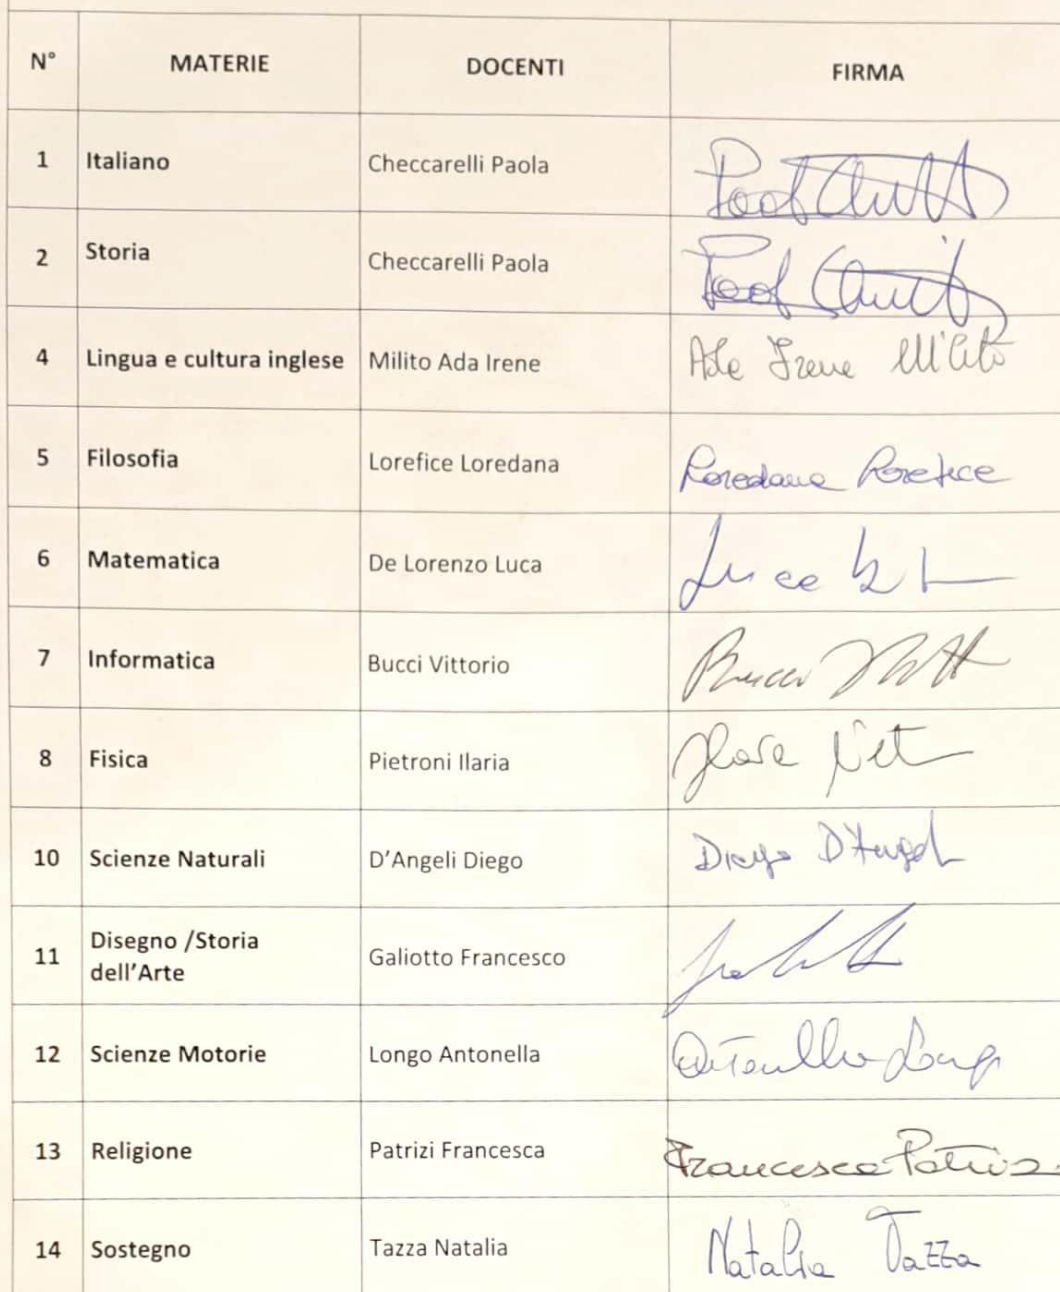 N° MATERIE DOCENTI FIRMA
1 Italiano Checcarelli Paola
2 Storia Checcarelli Paola
4 Lingua e cultura inglese Milito Ada Irene Ada Irene Milito
5 Filosofia Lorefice Loredana Loredana Lorefice
6 Matematica De Lorenzo Luca Luca
7 Informatica Bucci Vittorio Bucci
8 Fisica Pietroni Ilaria
10 Scienze Naturali D'Angeli Diego Diego D'Angeli
11 Disegno /Storia
dell'Arte Galiotto Francesco
12 Scienze Motorie Longo Antonella Antonella Longo
13 Religione Patrizi Francesca Francesca Patrizi
14 Sostegno Tazza Natalia Natalia Tazza